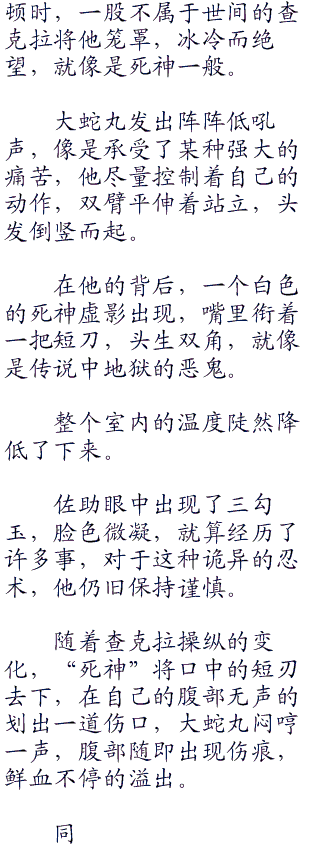 顿时，一股不属于世间的查
克拉将他笼罩，冰冷而绝
望，就像是死神一般。
大蛇丸发出阵阵低吼
声，像是承受了某种强大的
痛苦，他尽量控制着自己的
动作，双臂平伸着站立，头
发倒竖而起。
在他的背后，一个白色
的死神虚影出现，嘴里衔着
一把短刀，头生双角，就像
是传说中地狱的恶鬼。
整个室内的温度陡然降
低了下来。
佐助眼中出现了三勾
玉，脸色微凝，就算经历了
许多事，对于这种诡异的忍
术，他仍旧保持谨慎。
随着查克拉操纵的变
化，“死神”将口中的短刃
去下，在自己的腹部无声的
划出一道伤口，大蛇丸闷哼
一声，腹部随即出现伤痕，
鲜血不停的溢出。
同